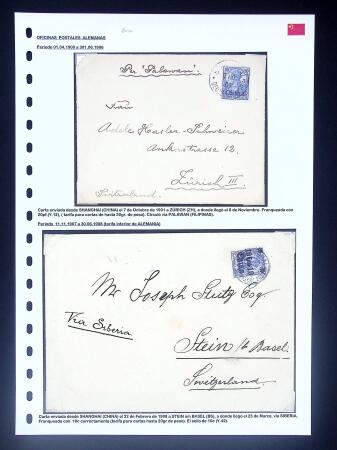 OFICINAS POSTALES ALEMANAS
Periodo 01.04.1900 a
Per "Palawan".
Frau
Adele Hasler-Schweizer
Ankerstrasse 12.
Zürich III.
Switzerland
Carta enviada desde SHANGHAI (CHINA) el 7 de Octubre de 1901 a ZURICH (ZH), a donde llegó el 8 de Noviembre. Franqueada con
20pf (Y.12), ( tarifa para cartas de hasta 20gr. de peso). Circuló vía PALAWAN (FILIPINAS).
Periodo 11.11.1907 a 30.06.1908 (tarifa interior de ALEMANIA)
Mr Joseph Stutz Esq.
Via Siberia
Stein b/ Basel.
Switzerland.
Carta enviada desde SHANGHAI (CHINA) el 22 de Febrero de 1908 a STEIN am BASEL (BS), a donde llegó el 23 de Marzo, vía SIBERIA.
Franqueada con 10c correctamente (tarifa para cartas hasta 20gr de peso). El sello de 10c (Y.42).